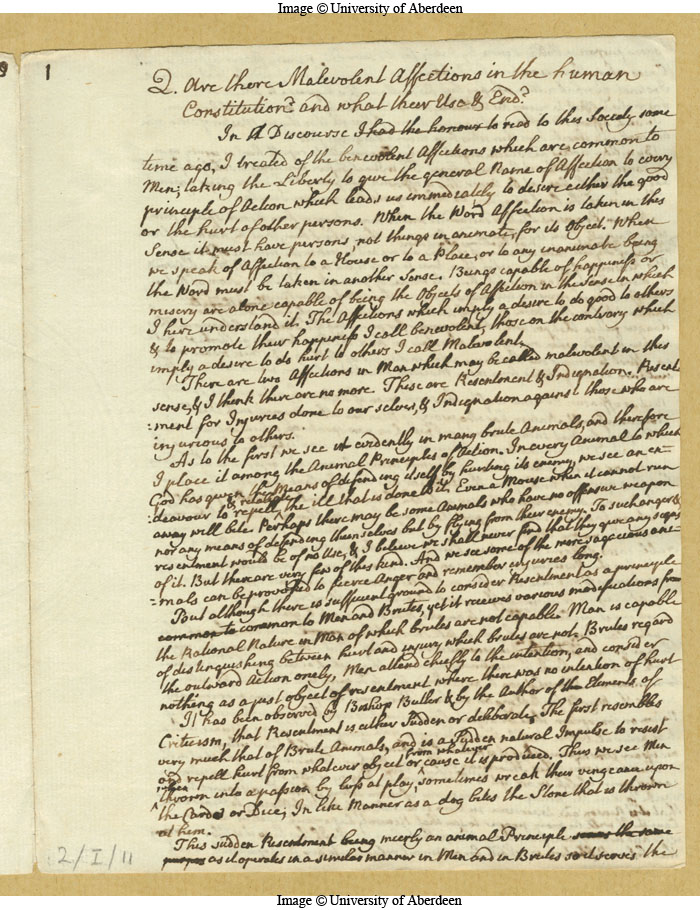 Image © University of Aberdeen
1
Q. Are there Malevolent Affections in the human
Constitution? and what their Use & End?
In A Discourse I had the honour to read to this Society some
time ago, I treated of the benevolent Affections which are common to
Men; taking the Liberty to give the general Name of Affection to every
principle of Action which leads us immediately to desire either the good
or the hurt of other persons. When the Word Affection is taken in this
Sense it must have persons, not things inanimate, for its Object. When
we speak of Affection to a House or to a Place, or to any inanimate being
the Word must be taken in another Sense. Beings capable of happiness or
misery are alone capable of being the Objects of Affection in the Sense in which
I here understand it. The Affections which imply a desire to do good to others
& to promote their happiness I call benevolent, those on the contrary which
imply a desire to do hurt to others I call Malevolent.
There are two Affections in Man which may be called malevolent in this
sense, & I think there are no more. These are Resentment & Indignation. Resent
=ment for Injuries done to our selves, & Indignation against those who are
injurious to others.
As to the first we see it evidently in many brute Animals, and therefore
I place it among the Animal Principles of Action. In every Animal to which
God has given the Means of defending itself by hurting its enemy, we see an en-
=deavour to repell & retaliate the ill that is done to it. Even a Mouse when it cannot run
away will bite. Perhaps there may be some Animals who have no offensive weapon
nor any means of defending themselves but by flying from their enemy. To such anger &
resentment would be of no Use, & I believe we shall never find that they give any signs
of it. But there are very few of this kind. And we see some of the more sagacious ani-
=mals can be provoked to fierce Anger and remember injuries long.
But although there is sufficient ground to consider Resentment as a principle
common to Men and Brutes, yet it receives various modifications from
the Rational Nature in Man of which brutes are not capable. Man is capable
of distinguishing between hurt and injury, which brutes are not. Brutes regard
the outward Action onely, Men attend chiefly to the intention, and consider
nothing as a just object of resentment where there was no intention of hurt
It has been observed by Bishop Butler & by the Author of the Elements of
Criticism, that Resentment is either Sudden or deliberate. The first resembles
very much that of Brute Animals, and is a Sudden natural Impulse to resist
and repell hurt from whatever object or from whatever cause it is produced. Thus we see Men
when thrown into a passion by loss at play, sometimes wreak their vengeance upon
the Cards or Dice; In like Manner as a dog bites the Stone that is thrown
at him.
This sudden Resentment being meerly an animal Principle
as it operates in a similar manner in Men and in Brutes so it serves the
2/I/11
Image © University of Aberdeen